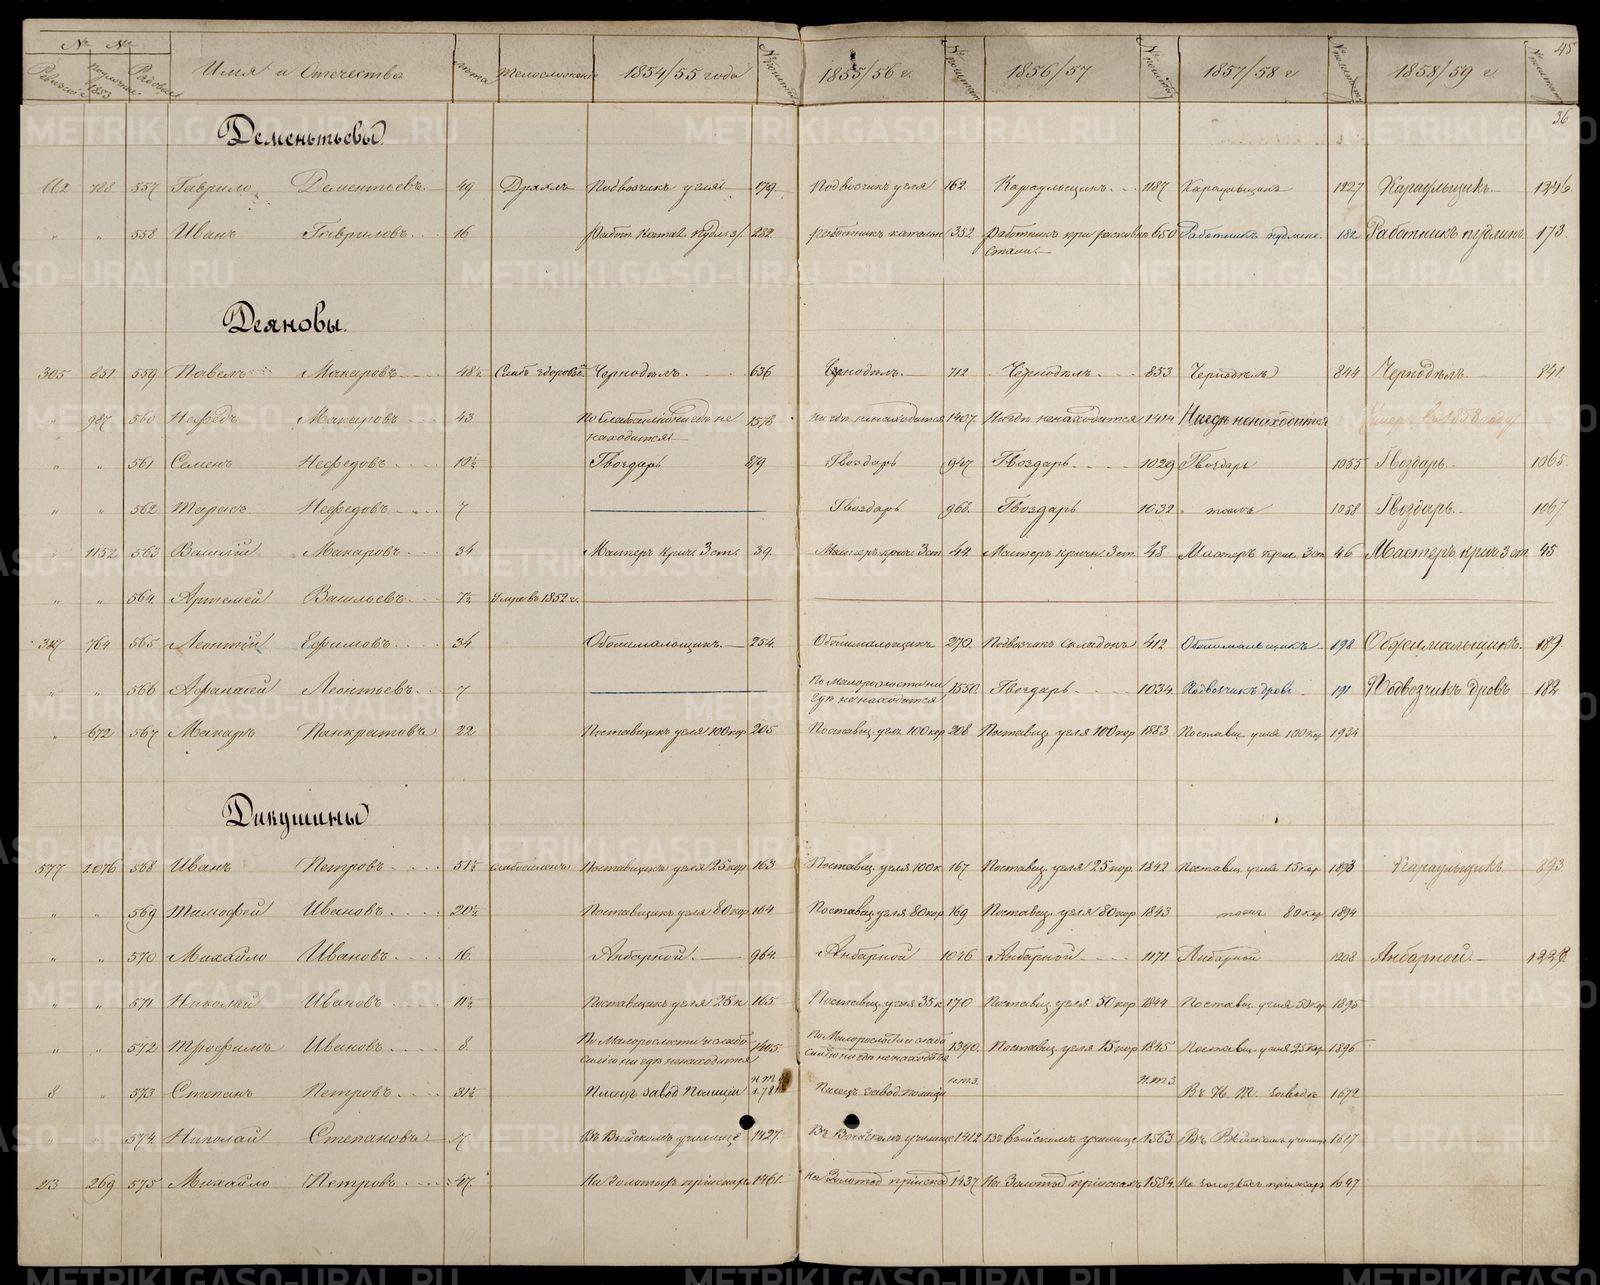 № №
Имя и Отчество
лета
Телосложение
1854/55 года
1855/56 г.
1856/57
1857/58 г
1858/59 г.
45
36
Дементьевы
112 728 557 Гаврило Дементьевъ 49 Дряхлъ Подвозчикъ угля 179. Подвозчикъ угля 162. Караульщикъ 1187 Караульщикъ 1227 Караульщикъ 1246
" " 558 Иванъ Гавриловъ 16 282 работникъ 352 Работникъ при 650 Работникъ пудлинг. 182 Работникъ пудлинг. 173.
Деяновы.
305 851 559 Павелъ Макаровъ 48½ Слабъ здоровьемъ Чернодѣлъ 636 Чернодѣлъ 712 Чернодѣлъ 853 Чернодѣлъ 844 Чернодѣлъ 841
" 987 560 Нефедъ Макаровъ 43 По Слабосилiю нигдѣ не 1578 Нигдѣ ненаходится 1407. Нигдѣ ненаходится 1414 Нигдѣ ненаходится Умеръ въ 1858 году
находится
" " 561 Семенъ Нефедовъ 10½ Гвоздарь 879 Гвоздарь 947 Гвоздарь 1029 Гвоздарь 1055 Гвоздарь 1065.
" " 562 Тарасъ Нефедовъ 7 Гвоздарь 968. Гвоздарь 1032 тожъ 1058 Гвоздарь 1067
" 1152 563 Василiй Макаровъ 34 Мастеръ кричн. 3 ст. 39. Мастеръ кричн. 3 ст 44. Мастеръ кричн. 3 ст. 48 Мастеръ крич. 3 ст 46 Мастеръ крич 3 ст. 45.
" " 564 Артемей Васильевъ 7½ Умре въ 1852 г.
327 764 565 Леонтiй Ефимовъ 34 Обжимальщикъ 254. Обжимальщикъ 270. Подвозчикъ 412 Обжимальщикъ 198 Обжимальщикъ 189.
" " 566 Афанасей Леонтьевъ 7 По Малорослости ни 1550. Гвоздарь 1034 Подвозчикъ дровъ 191 Подвозчикъ дровъ 182
гдѣ ненаходится
" 672 567 Макаръ Панкратовъ 22 Поставщикъ угля 100 кор 205 Поставщ. угля 100 кор 208 Поставщ. угля 100 кор 1883 Поставщ. угля 100 кор 1934
Дикушины
577 1076 568 Иванъ Петровъ 51½ слабосиленъ Поставщикъ угля 25 кор 163 Поставщ. угля 100 к 167 Поставщ. угля 25 кор. 1842 Поставщ. угля 15 кор 1893 Караульщикъ 893
" " 569 Тимофей Ивановъ 20½ Поставщикъ угля 80 кор 164 Поставщ. угля 80 кор 169 Поставщ. угля 80 кор 1843 тожъ 80 кор 1894
" " 570 Михайло Ивановъ 16 Анбарной 964. Анбарной 1046 Анбарной 1171 Анбарной 1208 Анбарной
" " 571 Николай Ивановъ 11½ Поставщикъ угля 25 к 165 Поставщ. угля 35 к 170 Поставщ. угля 50 кор 1844 Поставщ. угля 50 кор 1895
" " 572 Трофимъ Ивановъ 8. По Малорослости и слабо 1605. По Малорослости и слабо 1390. Поставщ. угля 15 кор 1845 Поставщ. угля 25 кор 1896
силiю ни гдѣ ненаходится силiю ни гдѣ ненаходится
8 " 573 Степанъ Петровъ 31½ Писецъ завод. Полицiи Писецъ завод. полицiи н.т.з. н.т.з. Въ Н. Т. заводѣ 1672
" " 574 Николай Степановъ 7. Въ Выйскомъ училищѣ 1427. Въ Выйскомъ училищѣ 1412 Въ выйскомъ училищѣ 1563 Въ Выйскомъ училищѣ 1617
213 269 575 Михайло Петровъ 47. На золотыхъ прiискахъ 1461. На Золотыхъ прiискахъ 1437 На Золотыхъ прiискахъ 1584. На золотыхъ прiискахъ 1647
METRIKI.GASO-URAL.RU